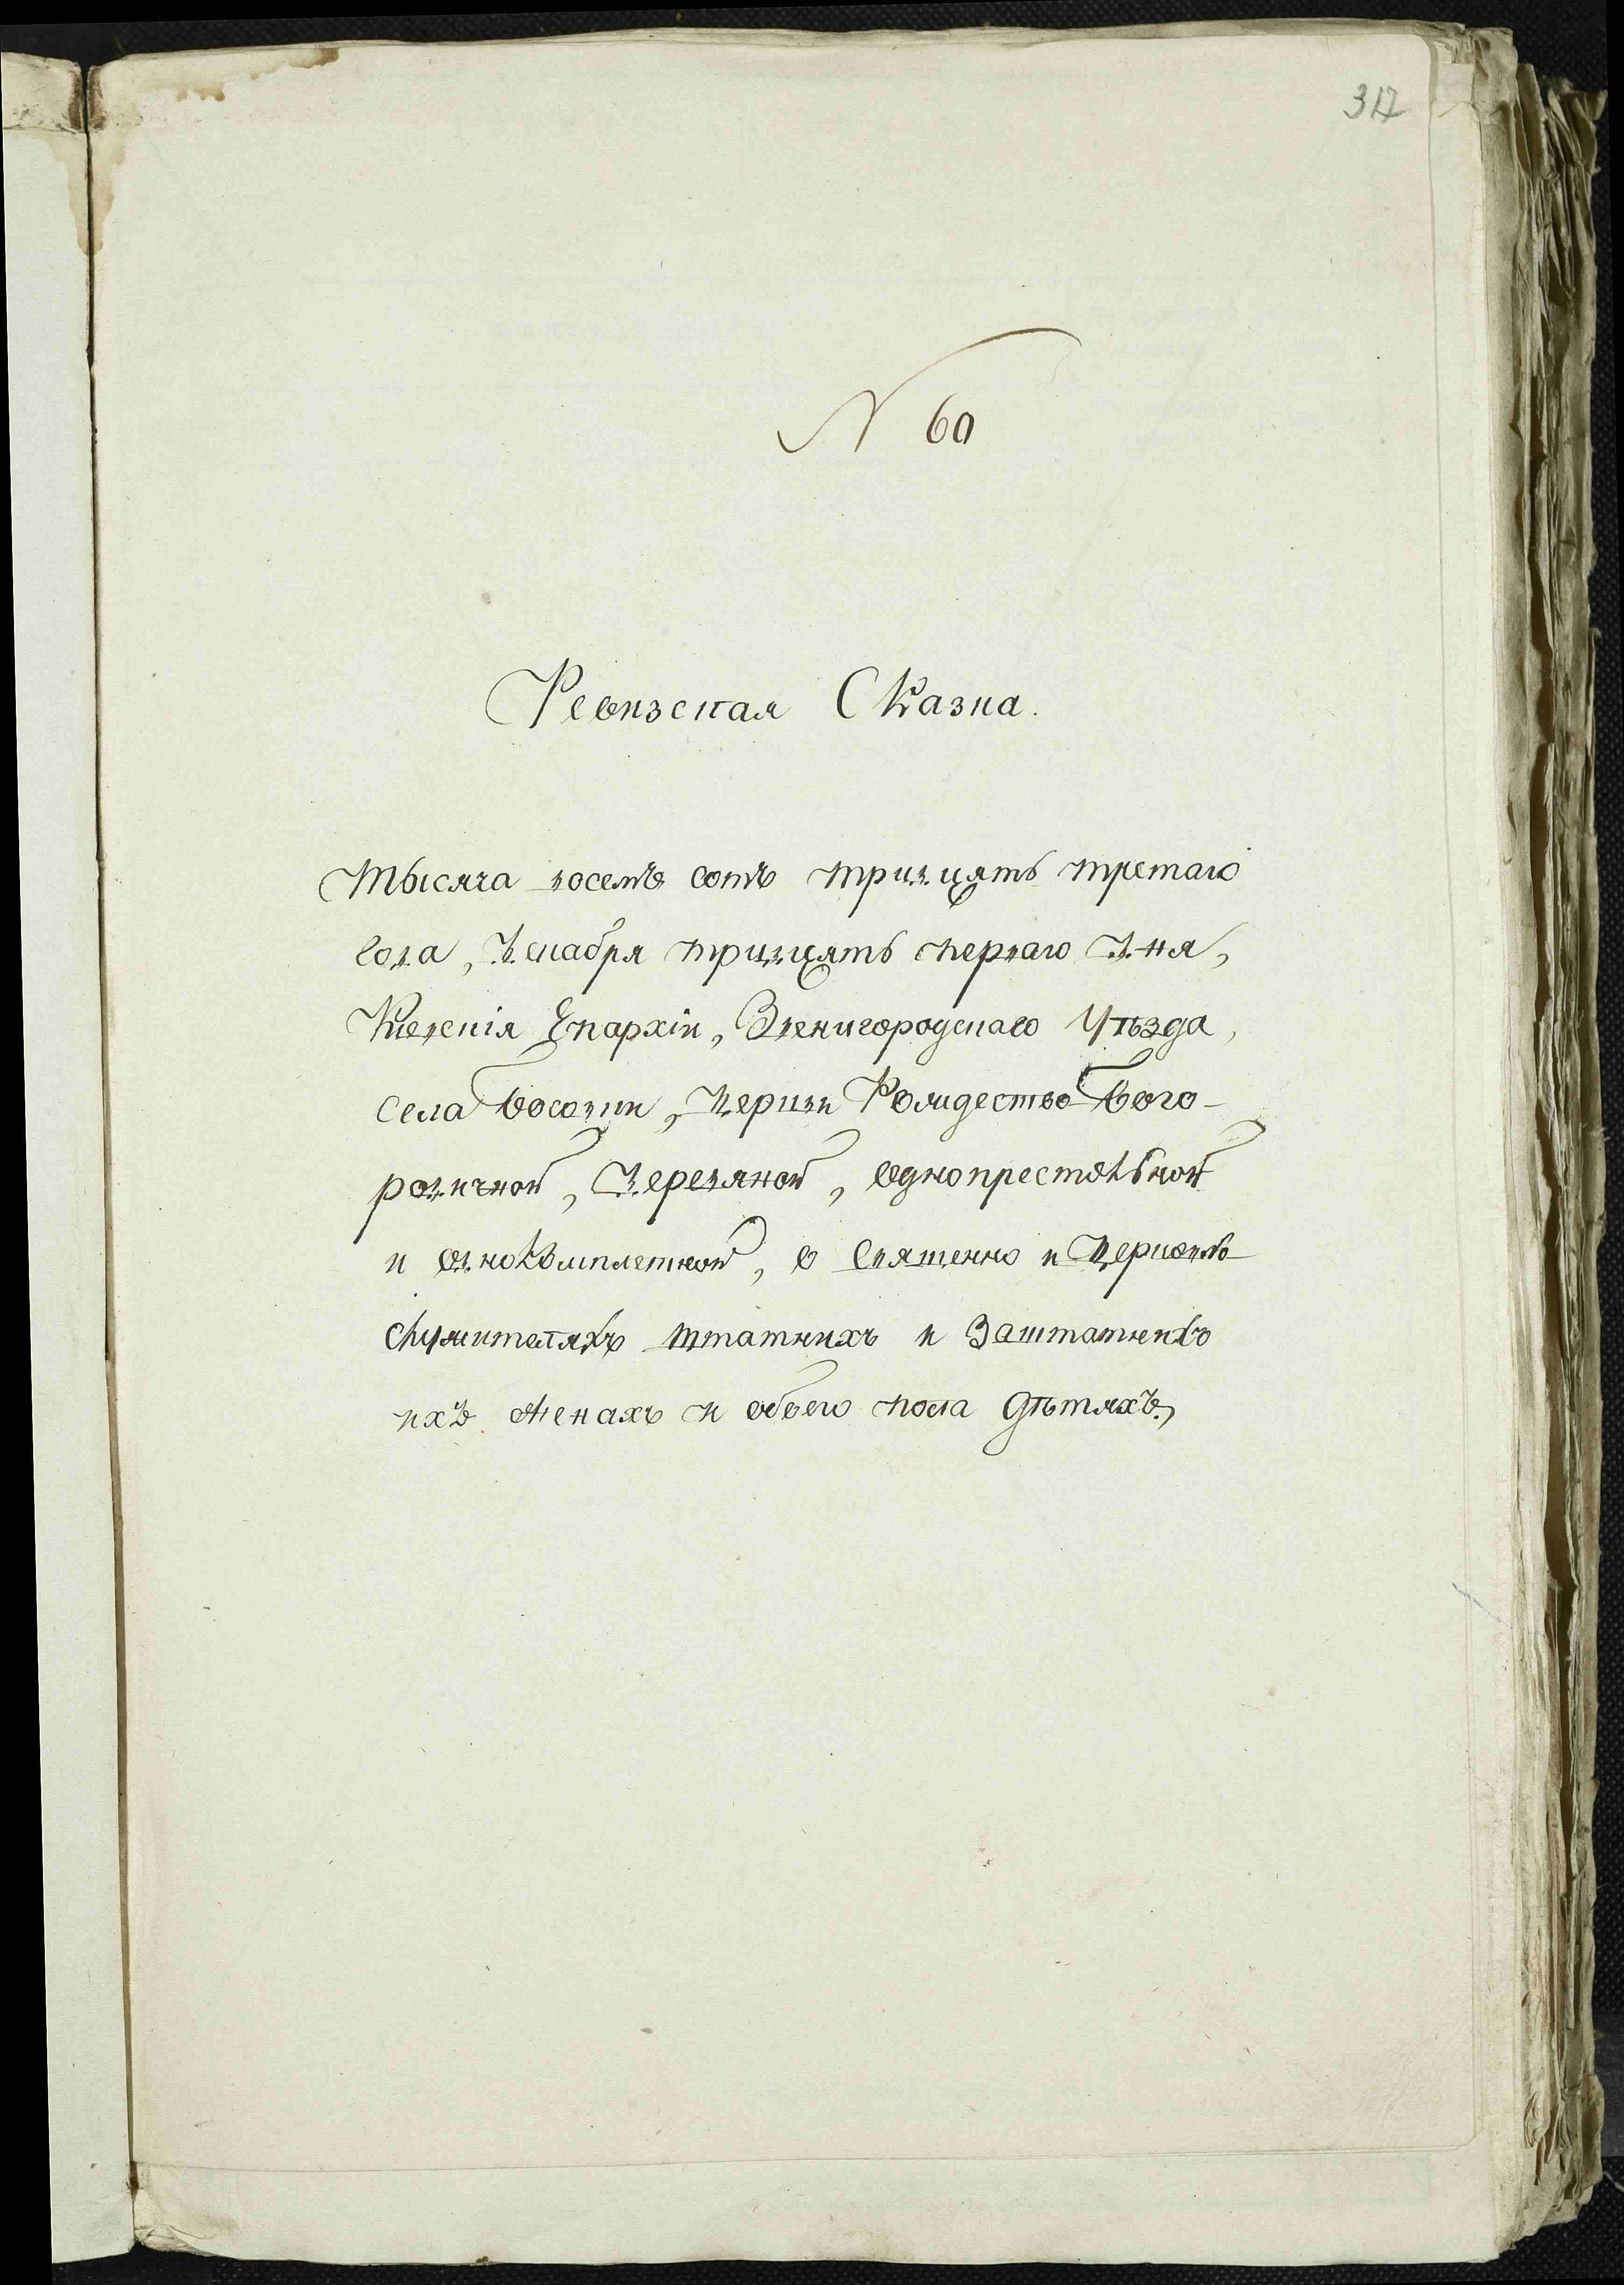 317
N 60
Ревизская Сказка.
Тысяча восемъ сотъ тридцять третаго
года, Декабря тридцять перваго Дня,
Киевскія Епархіи, Звенигородскаго Уѣзда,
села Босовки, Церкви Рождество Бого-
родичной, Деревяной, Однопрестольной
и однокомплетной, о Священно и Церковно
служителяхъ штатнихъ и Заштатнихъ
ихъ женахъ и обоего пола Дѣтяхъ,